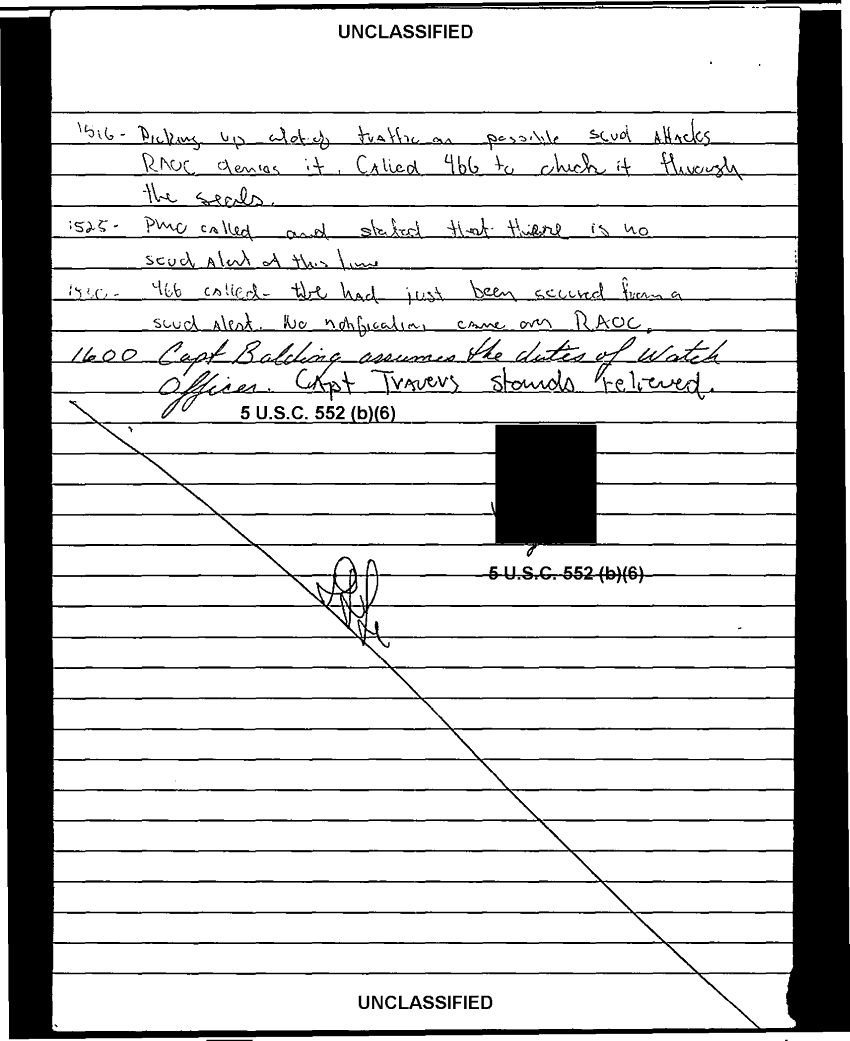 UNCLASSIFIED
1516- Picking up alot of traffic on possible scud attacks
RAOC denies it. Called 466 to check it through
the seals.
1525- PMO called and stated that there is no
scud alert at this time
1530- 466 called- the had just been secured from a
scud alert. No notification came over RAOC.
1600 Capt Balding assumes the duties of Watch
Officer. Capt Travers stands relieved.
5 U.S.C. 552 (b)(6)
5 U.S.C. 552 (b)(6)
UNCLASSIFIED